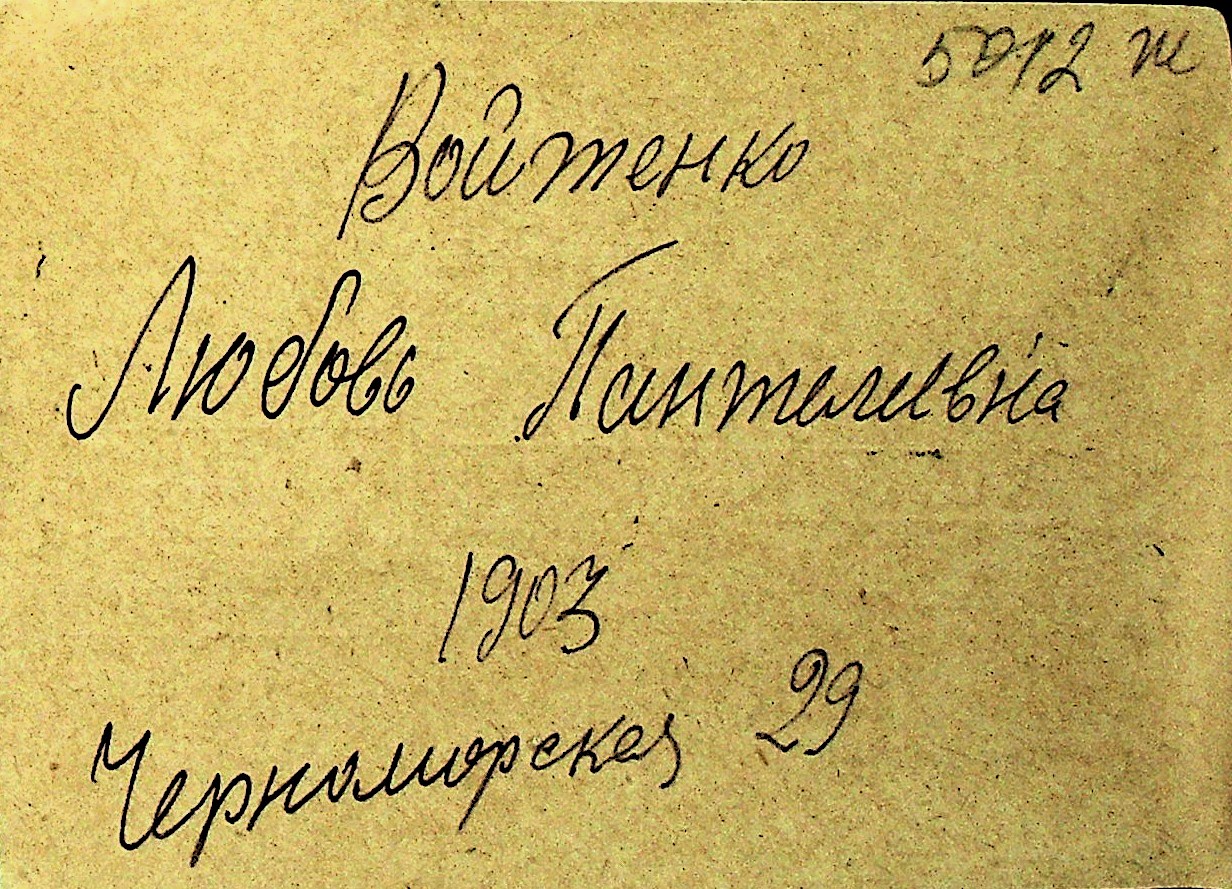 5012 ж
Войтенко
Любовь Пантелеевна
1903
Черноморская 29